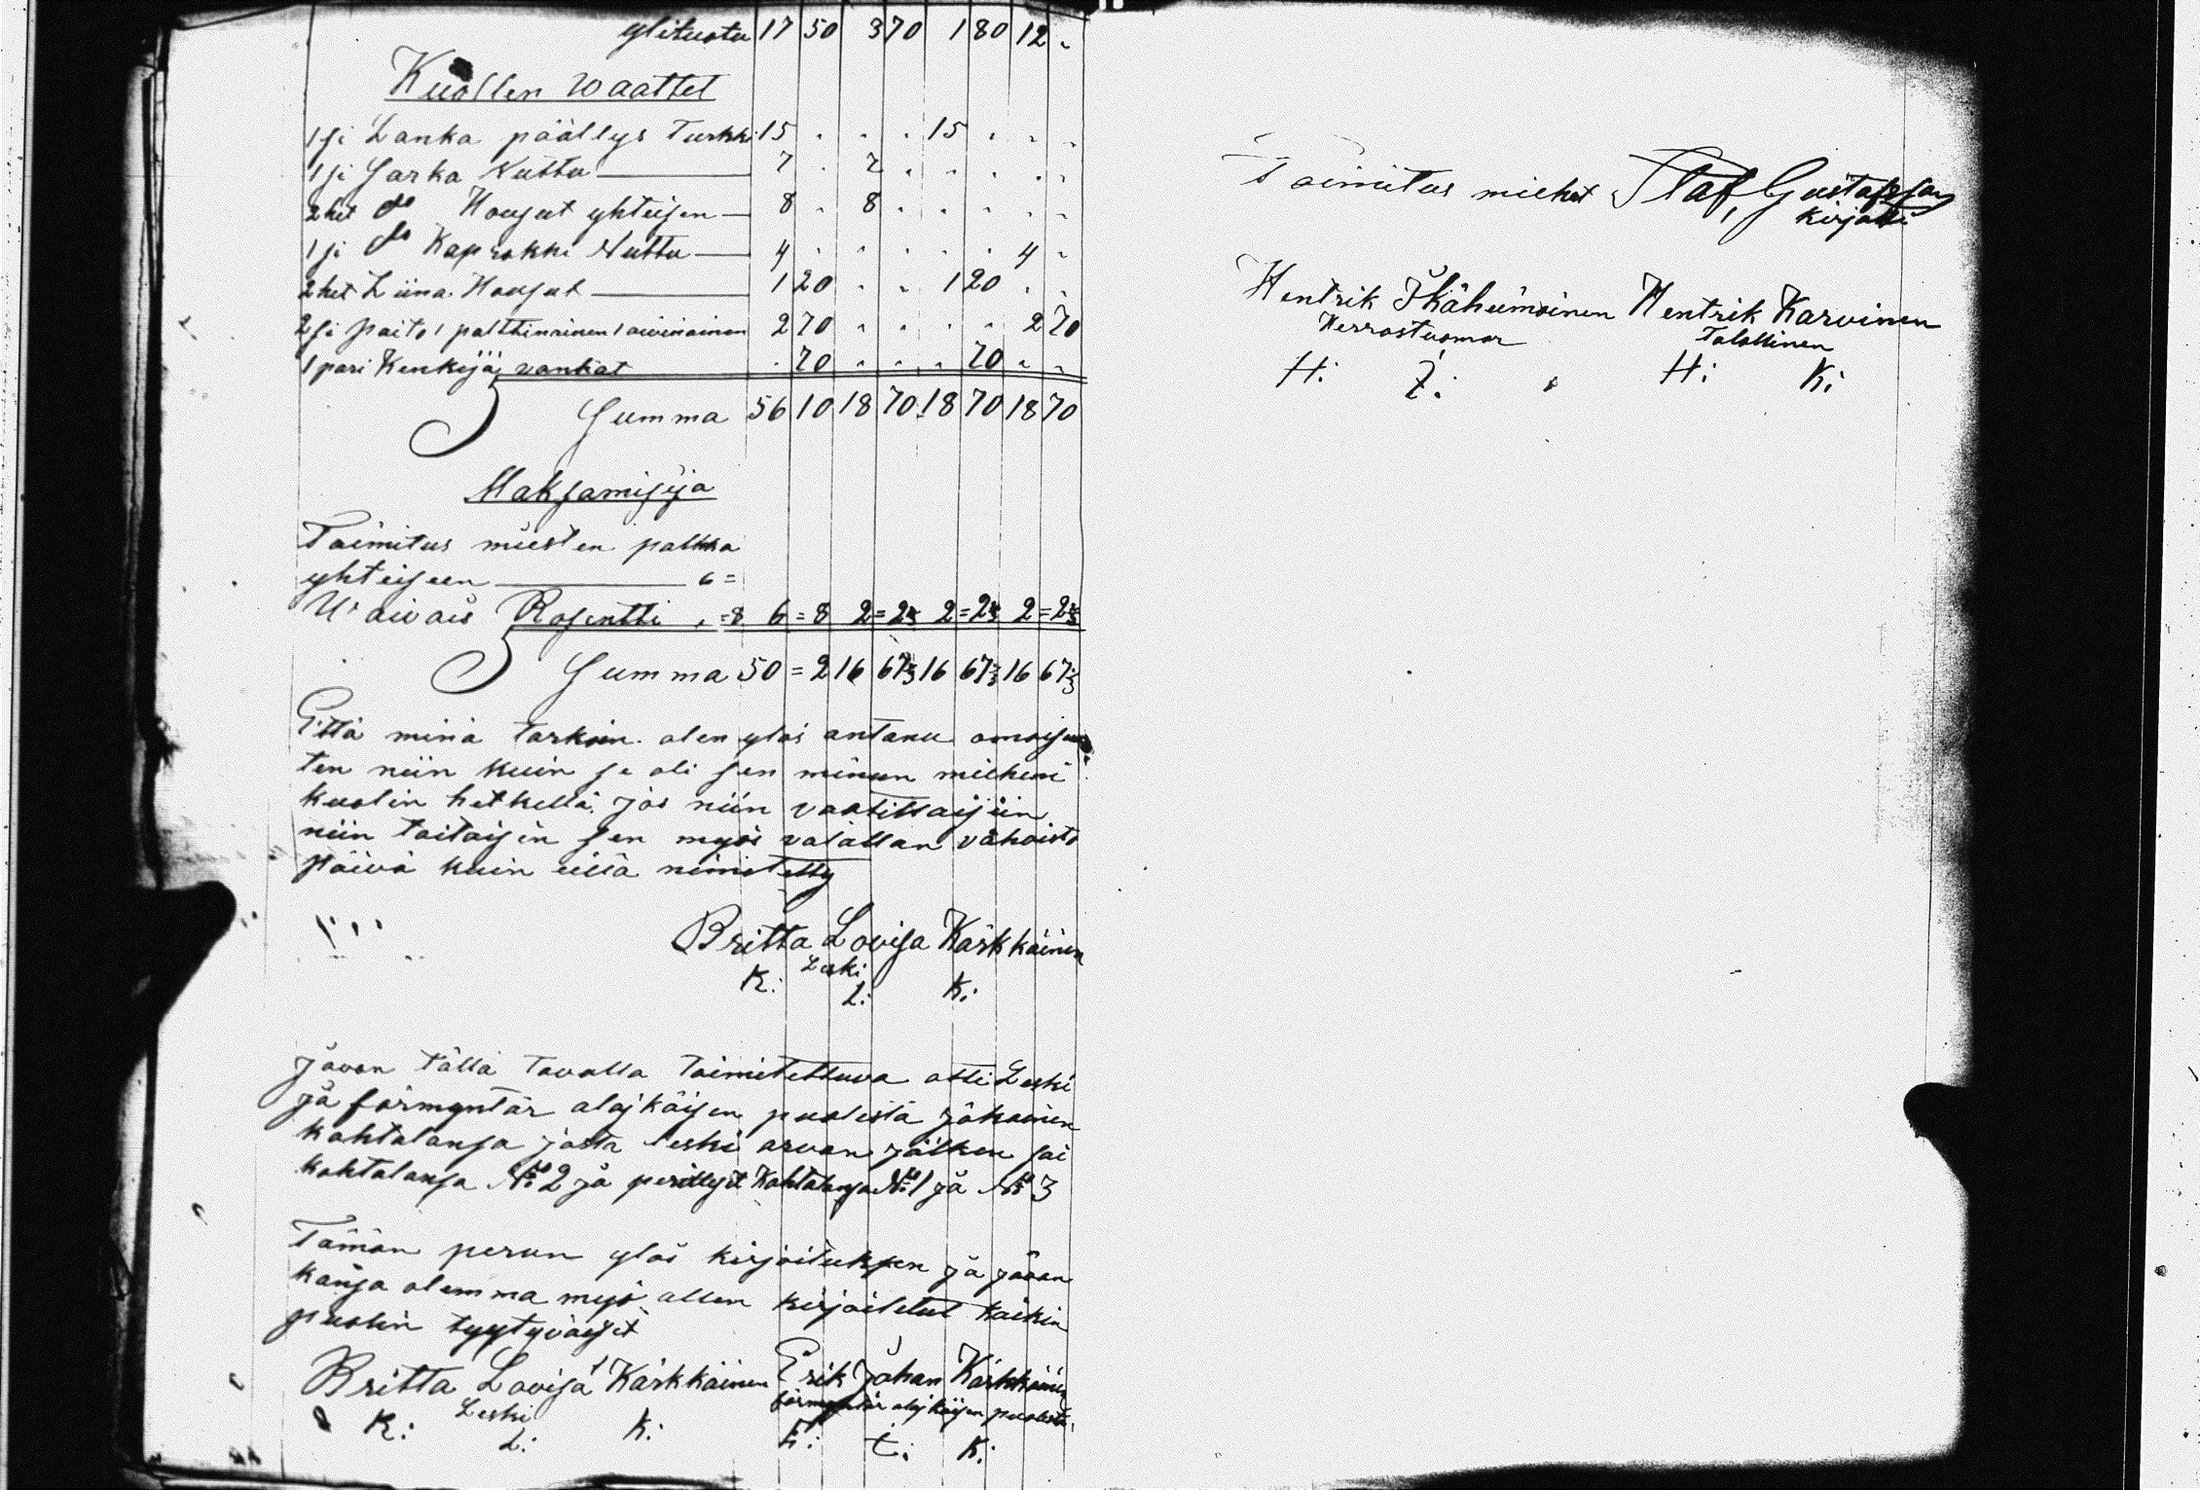 ylituotu 17 50 3 70 1 80 12 "
Kuollen Waattet
1 si Lanka päällys Turkki 15 . . . 15 . . .
1 si Sarka Nuttu 7 . 7 . . . . .
2 het do Housut yhteisen 8 . 8 . . . . .
1 si do Kaprokki Nuttu 4 . . . . . 4 .
2 het Liina Housut 1 20 . . 1 20 . .
2 si paito 1 palttinainen 1 aivinainen 2 70 . . . . 2 70
1 pari Kenkijä vanhat . 70 . . . 70 . .
Summa 56 10 18 70 18 70 18 70
Maksamisija
Toimitus miesten palkka
yhteiseen 6 =
Waivais Rosentti = 8 6 = 8 2 = 2⅔ 2 = 2⅔ 2 = 2⅔
Summa 50 = 2 16 67⅓ 16 67⅓ 16 67⅓
Että minä tarkoin olen ylös antanu omaisuu
ten niin kuin se oli sen minun mieheni
kuolin hetkellä, jos niin vaatittaisiin
niin taitaisin sen myös valallan vahvista
päivä kuin eillä nimitetty
Britta Lovisa Kärkkäinen
Leski
K: L: K:
Jaoon tällä tavalla toimitettuva otti Leski
ja förmyntär alaikäisen puolesta jokainen
kohtalansa josta leski arvan jälken sai
kohtalansa No 2 ja perilliset kohtalansa No 1 ja No 3
Tämän perun ylös kirjoituksen ja jaoon
kansa olemma myö allen kirjoitetut kaikin
puolin tyytyväiset
Britta Lovisa Kärkkäinen Erik Johan Kärkkäinen
Leski förmyntär alaikäisen puolesta
K: L: K: E: J: K:
Toimitus miehet Staf, Gustafsson
kirjotti
Hentrik Ikäheimoinen Hentrik Karvinen
Herrastuomar Talollinen
H: I: H: K: